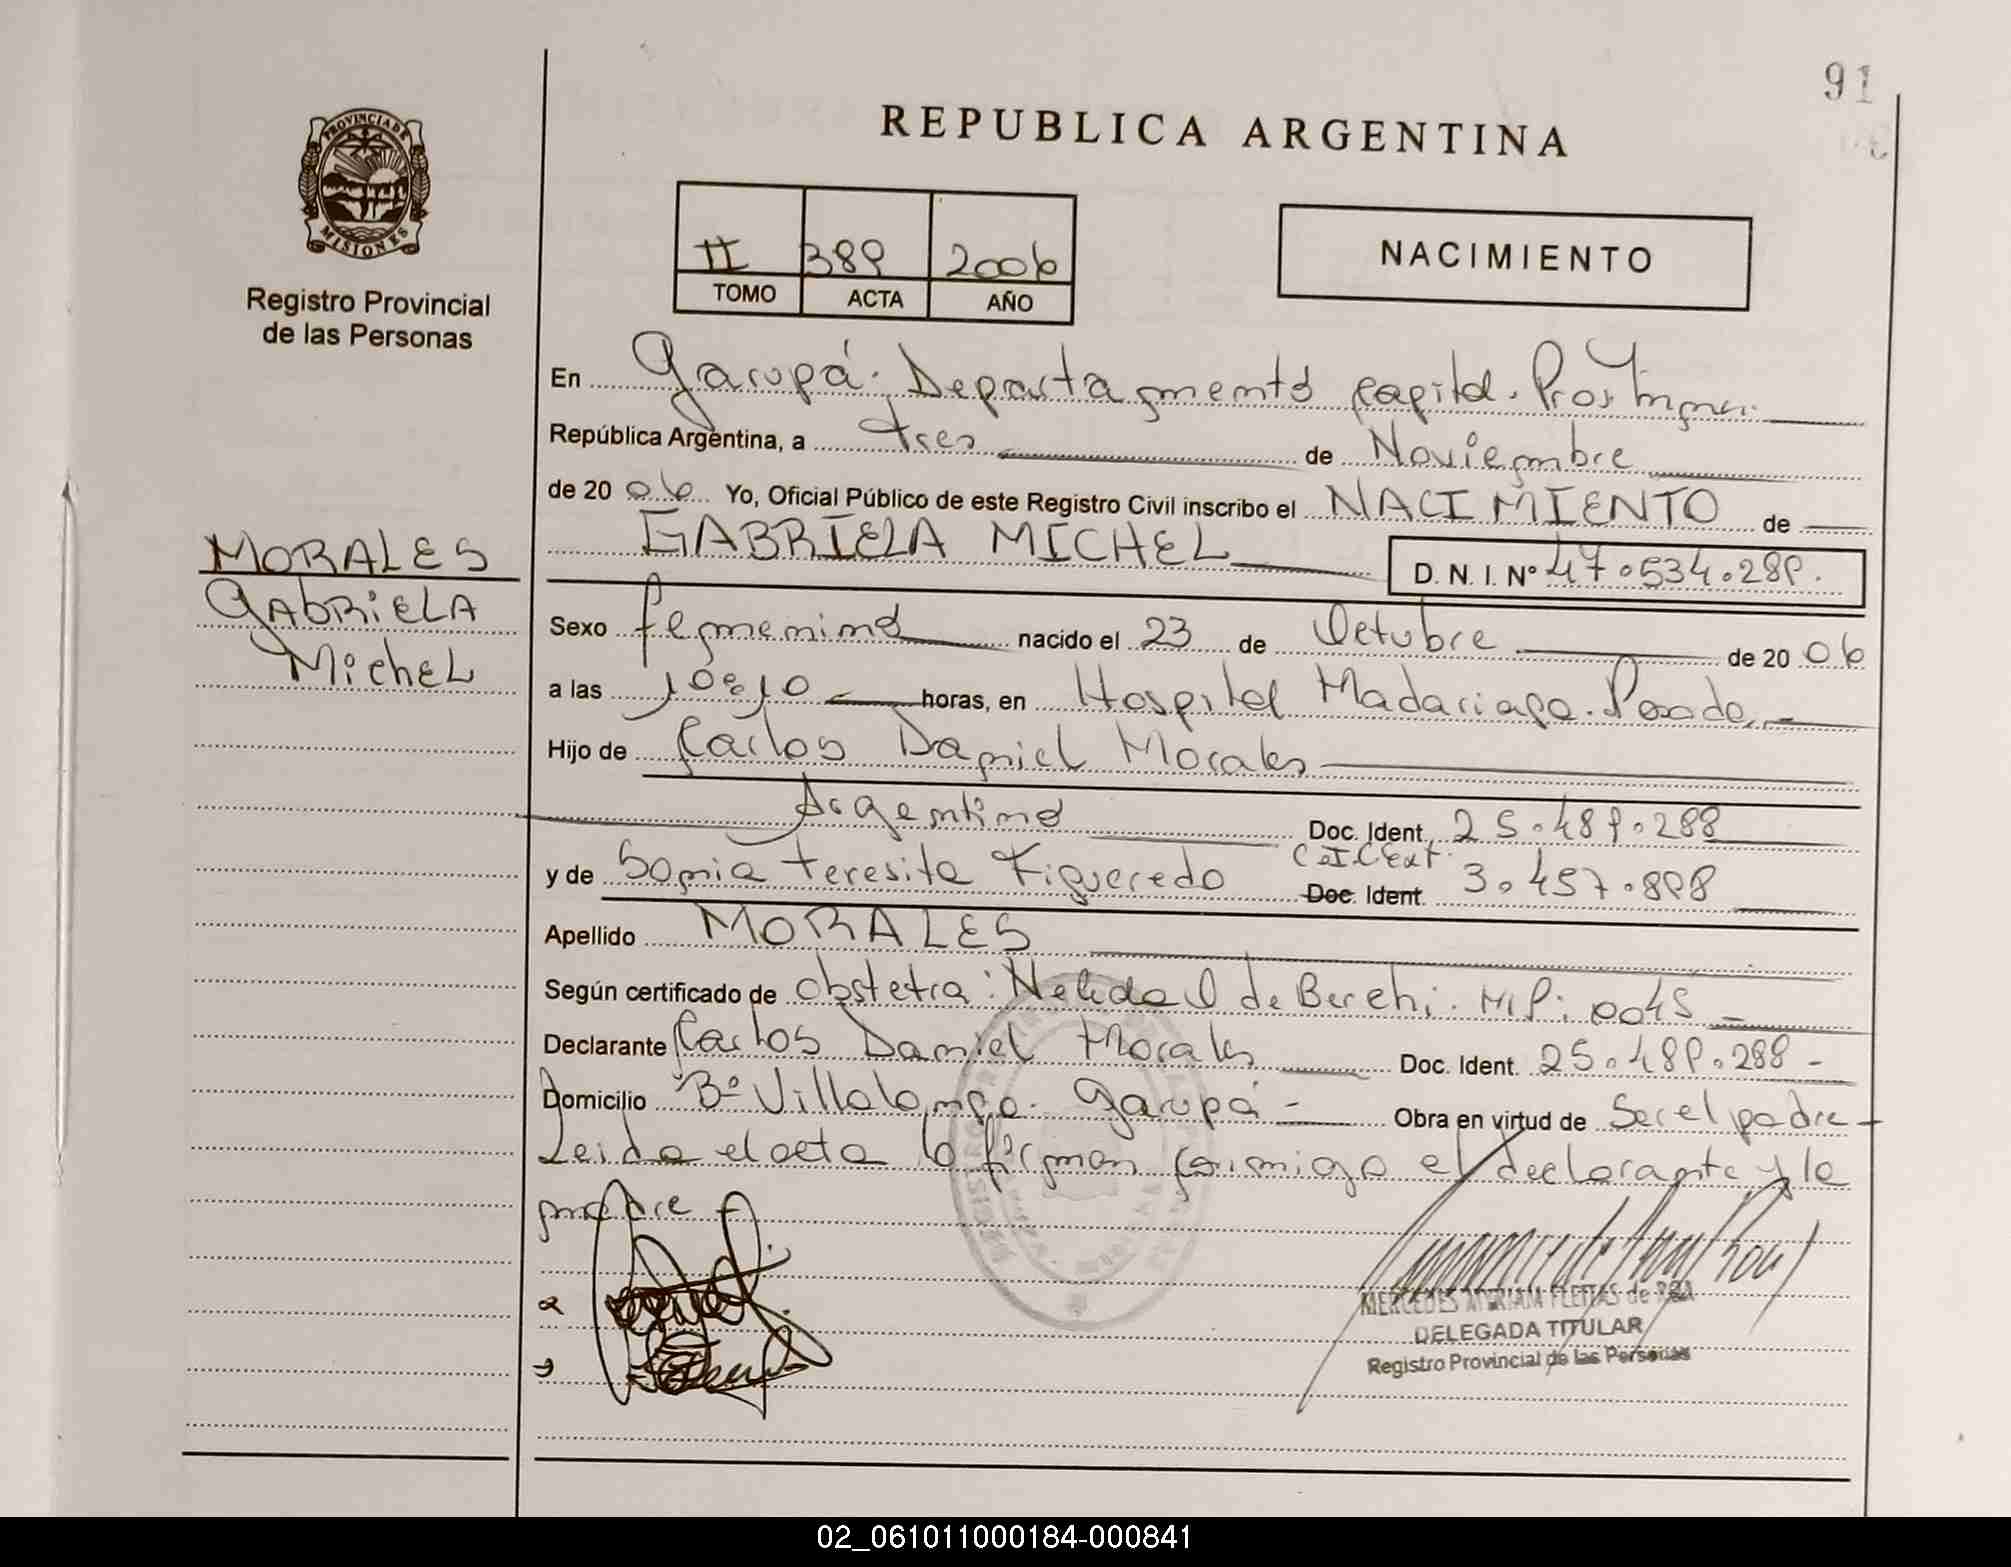 91
REPUBLICA ARGENTINA
PROVINCIA DE
MISIONES
Registro Provincial
de las Personas
II 389 2006
TOMO ACTA AÑO
NACIMIENTO
En Garupá. Departamento Capital. Prov
República Argentina, a tres de Noviembre
de 2006 Yo, Oficial Público de este Registro Civil inscribo el NACIMIENTO de
GABRIELA MICHEL D. N. I. Nº 47.534.289.
MORALES
GAbRiELA
MicheL
Sexo femenino nacido el 23 de Octubre de 2006
a las 10:10 horas, en Hospital Madariaga. Posadas
Hijo de Carlos Daniel Morales
Argentino Doc. Ident. 25.489.288
C.I.C Ext.
y de Sonia Teresita Figueredo Doc. Ident. 3.457.898
Apellido MORALES
Según certificado de obstetra: Nelida de Berchi. M.P: 0045
Declarante Carlos Daniel Morales Doc. Ident. 25.489.288 -
Domicilio Bº Villalonga. Garupá - Obra en virtud de Ser el padre -
Leida el acta lo firman conmigo el declarante y la
madre -
MERCEDES MYRIAM FLEITAS de
DELEGADA TITULAR
Registro Provincial de las Personas
02_061011000184-000841